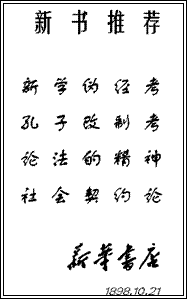 新书推荐
新学伪经考
孔子改制考
论法的精神
社会契约论
新华书店
1898.10.21